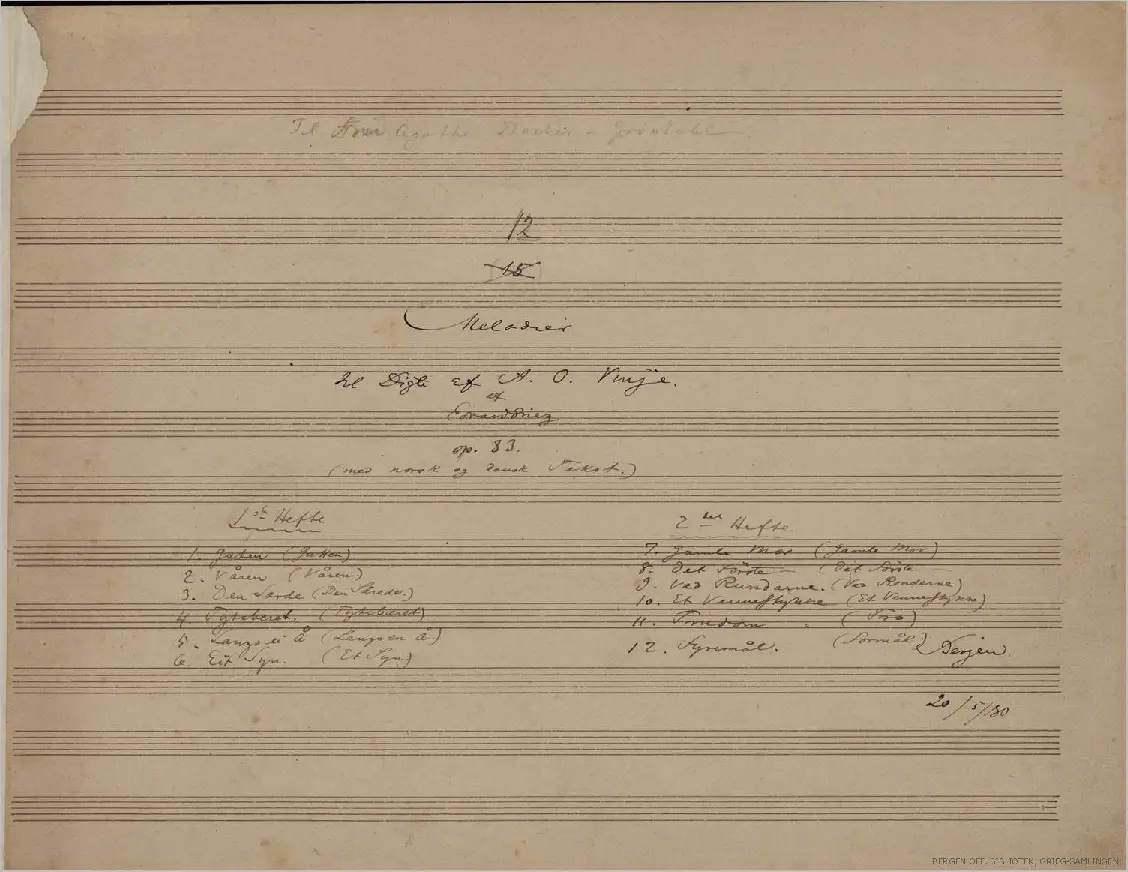 Til Fru Agathe Backer-Gröndahl
12
15
Melodier
til Digte af A. O. Vinje.
af
Edvard Grieg
op. 33.
(med norsk og dansk Tekst.)
1ste Hefte
1. Guten (Gutten)
2. Våren (Våren)
3. Den Særde (Den Sårede.)
4. Tytebæret. (Tyttebæret)
5. Langs ei Å (Langs en Å)
6. Eit Syn. (Et Syn)
2det Hefte
7. Gamle Mor (Gamle Mor)
8. Det Första – (Det Første –
9. Ved Rundarne. (Ved Ronderne)
10. Et Vennestykke (Et Vennestykke)
11. Trudom (Tro)
12. Fyremål. (Formål)
Bergen
20/5/80
BERGEN OFF. BIBLIOTEK, GRIEG-SAMLINGEN